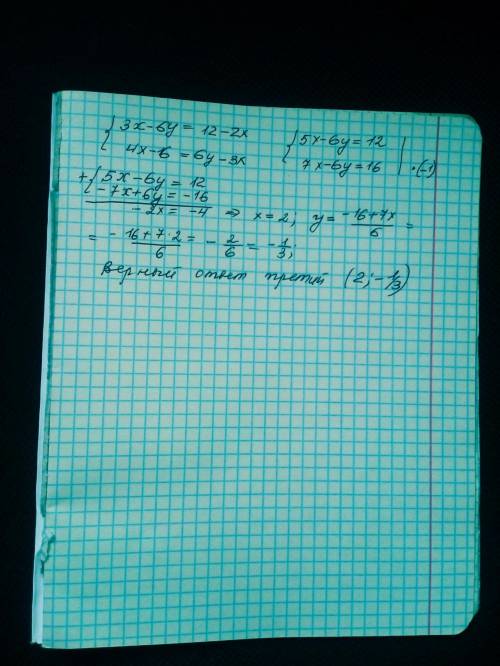 {3x-6y = 12-2x {5x-6y=12
4x-16 = 6y-3x 7x-6y=16 | ·(-1)
+{5x-6y = 12
-7x+6y = -16
-2x = -4 ⇒ x=2; y = (-16+7x)/6 =
= (-16+7·2)/6 = -2/6 = -1/3;
верный ответ третий (2; -1/3)